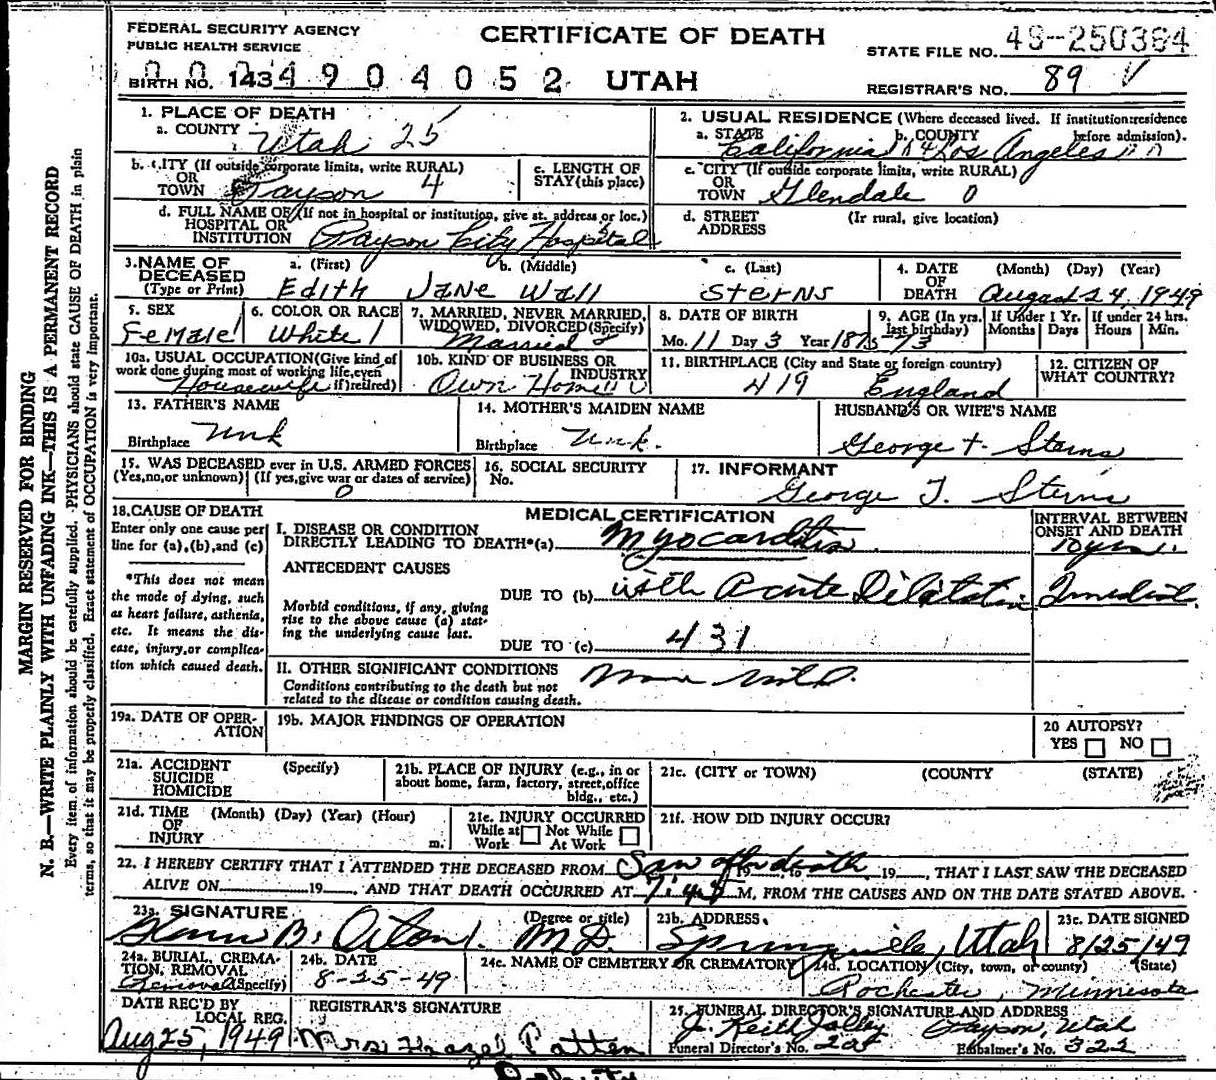 FEDERAL SECURITY AGENCY
PUBLIC HEALTH SERVICE
CERTIFICATE OF DEATH
STATE FILE NO. 49-250384
BIRTH NO. 143 4904052 UTAH
REGISTRAR'S NO. 89 V
MARGIN RESERVED FOR BINDING
N. B.—WRITE PLAINLY WITH UNFADING INK—THIS IS A PERMANENT RECORD
Every item of information should be carefully supplied. PHYSICIANS should state CAUSE OF DEATH in plain
terms, so that it may be properly classified. Exact statement of OCCUPATION is very important.
1. PLACE OF DEATH
a. COUNTY Utah 25
2. USUAL RESIDENCE (Where deceased lived. If institution: residence before admission).
a. STATE California b. COUNTY Los Angeles
b. CITY (If outside corporate limits, write RURAL) OR TOWN Payson 4
c. LENGTH OF STAY (this place)
c. CITY (If outside corporate limits, write RURAL) OR TOWN Glendale 0
d. FULL NAME OF (If not in hospital or institution, give st. address or loc.) HOSPITAL OR INSTITUTION Payson City Hospital
d. STREET ADDRESS (If rural, give location)
3. NAME OF DECEASED (Type or Print) a. (First) b. (Middle) c. (Last)
Edith Jane Wall Sterns
4. DATE OF DEATH (Month) (Day) (Year)
August 24, 1949
5. SEX Female 1
6. COLOR OR RACE White 1
7. MARRIED, NEVER MARRIED, WIDOWED, DIVORCED (Specify) Married 2
8. DATE OF BIRTH Mo. 11 Day 3 Year 1875
9. AGE (In yrs. last birthday) 73
If Under 1 Yr. Months Days
If under 24 hrs. Hours Min.
10a. USUAL OCCUPATION (Give kind of work done during most of working life, even if retired) Housewife
10b. KIND OF BUSINESS OR INDUSTRY Own Home
11. BIRTHPLACE (City and State or foreign country) 419 England
12. CITIZEN OF WHAT COUNTRY?
13. FATHER'S NAME
Birthplace Unk
14. MOTHER'S MAIDEN NAME
Birthplace Unk.
HUSBAND'S OR WIFE'S NAME
George T. Sterns
15. WAS DECEASED ever in U.S. ARMED FORCES (Yes, no, or unknown) (If yes, give war or dates of service) 0
16. SOCIAL SECURITY No.
17. INFORMANT
George T. Sterns
18. CAUSE OF DEATH
Enter only one cause per line for (a), (b), and (c)
*This does not mean the mode of dying, such as heart failure, asthenia, etc. It means the disease, injury, or complication which caused death.
MEDICAL CERTIFICATION
INTERVAL BETWEEN ONSET AND DEATH
I. DISEASE OR CONDITION DIRECTLY LEADING TO DEATH*(a) Myocarditis 10 yrs.
ANTECEDENT CAUSES
Morbid conditions, if any, giving rise to the above cause (a) stating the underlying cause last.
DUE TO (b) with Acute Dilatation Immediate
DUE TO (c) 431
II. OTHER SIGNIFICANT CONDITIONS
Conditions contributing to the death but not related to the disease or condition causing death.
None noted.
19a. DATE OF OPERATION
19b. MAJOR FINDINGS OF OPERATION
20 AUTOPSY? YES NO
21a. ACCIDENT SUICIDE HOMICIDE (Specify)
21b. PLACE OF INJURY (e.g., in or about home, farm, factory, street, office bldg., etc.)
21c. (CITY or TOWN) (COUNTY (STATE)
21d. TIME OF INJURY (Month) (Day) (Year) (Hour) m.
21e. INJURY OCCURRED While at Work Not While At Work
21f. HOW DID INJURY OCCUR?
22. I HEREBY CERTIFY THAT I ATTENDED THE DECEASED FROM Saw after death 19 to 19, THAT I LAST SAW THE DECEASED
ALIVE ON 19, AND THAT DEATH OCCURRED AT 7:45 M, FROM THE CAUSES AND ON THE DATE STATED ABOVE.
23a. SIGNATURE (Degree or title)
B. Orton M.D.
23b. ADDRESS
Springville, Utah
23c. DATE SIGNED
8/25/49
24a. BURIAL, CREMATION, REMOVAL (Specify) Removal
24b. DATE
8-25-49
24c. NAME OF CEMETERY OR CREMATORY
24d. LOCATION (City, town, or county) (State)
Rochester, Minnesota
DATE REC'D BY LOCAL REG.
Aug 25, 1949
REGISTRAR'S SIGNATURE
Mrs Hazel Patten
25. FUNERAL DIRECTOR'S SIGNATURE AND ADDRESS
J. Keith Jolley Payson, Utah
Funeral Director's No. 225 Embalmer's No. 322
Deputy